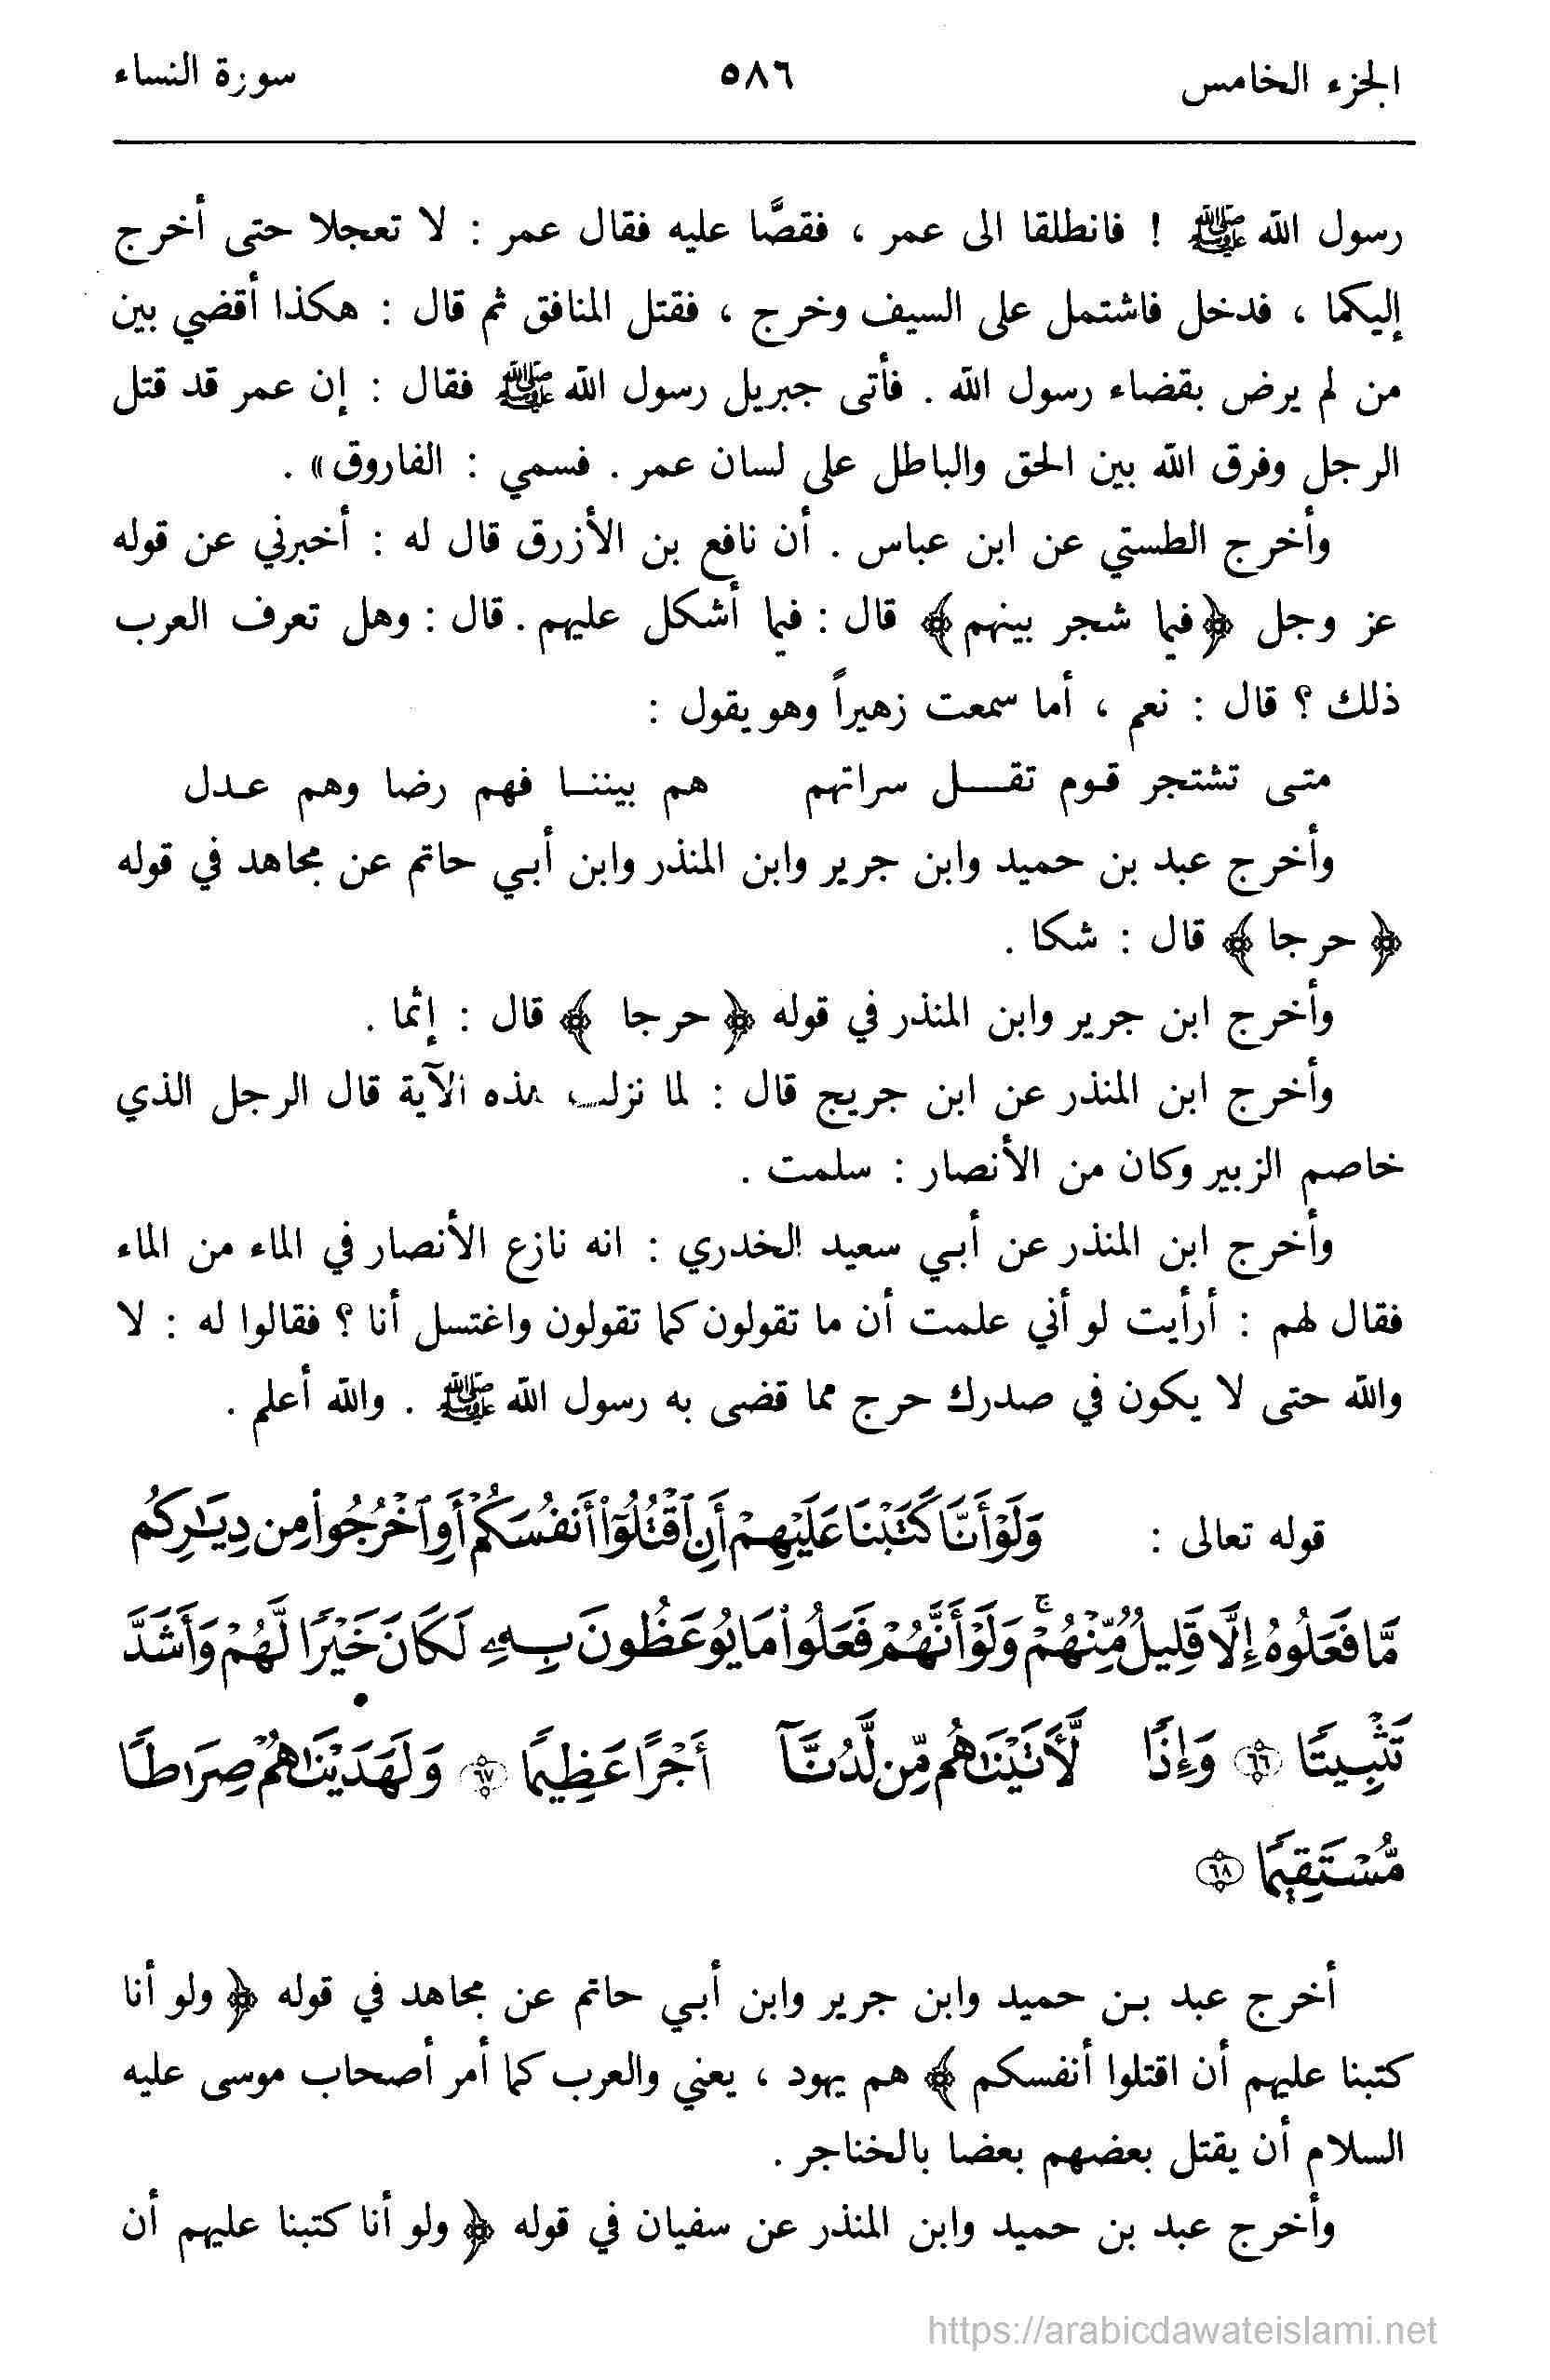 الجزء الخامس ٥٨٦ سورة النساء
رسول الله ﷺ ! فانطلقا الى عمر ، فقصَّا عليه فقال عمر : لا تعجلا حتى أخرج
إليكما ، فدخل فاشتمل على السيف وخرج ، فقتل المنافق ثم قال : هكذا أقضي بين
من لم يرض بقضاء رسول الله . فأتى جبريل رسول الله ﷺ فقال : إن عمر قد قتل
الرجل وفرق الله بين الحق والباطل على لسان عمر . فسمي : الفاروق» .
وأخرج الطستي عن ابن عباس . أن نافع بن الأزرق قال له : أخبرني عن قوله
عز وجل ﴿فيما شجر بينهم﴾ قال : فيما أشكل عليهم . قال : وهل تعرف العرب
ذلك ؟ قال : نعم ، أما سمعت زهيراً وهو يقول :
متى تشتجر قوم تقل سراتهم هم بيننا فهم رضا وهم عدل
وأخرج عبد بن حميد وابن جرير وابن المنذر وابن أبي حاتم عن مجاهد في قوله
﴿ حرجا ﴾ قال : شكا .
وأخرج ابن جرير وابن المنذر في قوله ﴿ حرجا ﴾ قال : إثما .
وأخرج ابن المنذر عن ابن جريج قال : لما نزلت هذه الآية قال الرجل الذي
خاصم الزبير وكان من الأنصار : سلمت .
وأخرج ابن المنذر عن أبي سعيد الخدري : انه نازع الأنصار في الماء من الماء
فقال لهم : أرأيت لو أني علمت أن ما تقولون كما تقولون واغتسل أنا ؟ فقالوا له : لا
والله حتى لا يكون في صدرك حرج مما قضى به رسول الله ﷺ . والله أعلم .
قوله تعالى : وَلَوْ أَنَّا كَتَبْنَا عَلَيْهِمْ أَنِ ٱقْتُلُوٓا۟ أَنفُسَكُمْ أَوِ ٱخْرُجُوا۟ مِن دِيَـٰرِكُم
مَّا فَعَلُوهُ إِلَّا قَلِيلٌ مِّنْهُمْ ۖ وَلَوْ أَنَّهُمْ فَعَلُوا۟ مَا يُوعَظُونَ بِهِۦ لَكَانَ خَيْرًا لَّهُمْ وَأَشَدَّ
تَثْبِيتًا ٦٦ وَإِذًا لَّأَتَيْنَـٰهُم مِّن لَّدُنَّآ أَجْرًا عَظِيمًا ٦٧ وَلَهَدَيْنَـٰهُمْ صِرَٰطًا
مُّسْتَقِيمًا ٦٨
أخرج عبد بن حميد وابن جرير وابن أبي حاتم عن مجاهد في قوله ﴿ ولو أنا
كتبنا عليهم أن اقتلوا أنفسكم ﴾ هم يهود ، يعني والعرب كما أمر أصحاب موسى عليه
السلام أن يقتل بعضهم بعضا بالخناجر .
وأخرج عبد بن حميد وابن المنذر عن سفيان في قوله ﴿ ولو أنا كتبنا عليهم أن
https://arabicdawateislami.net